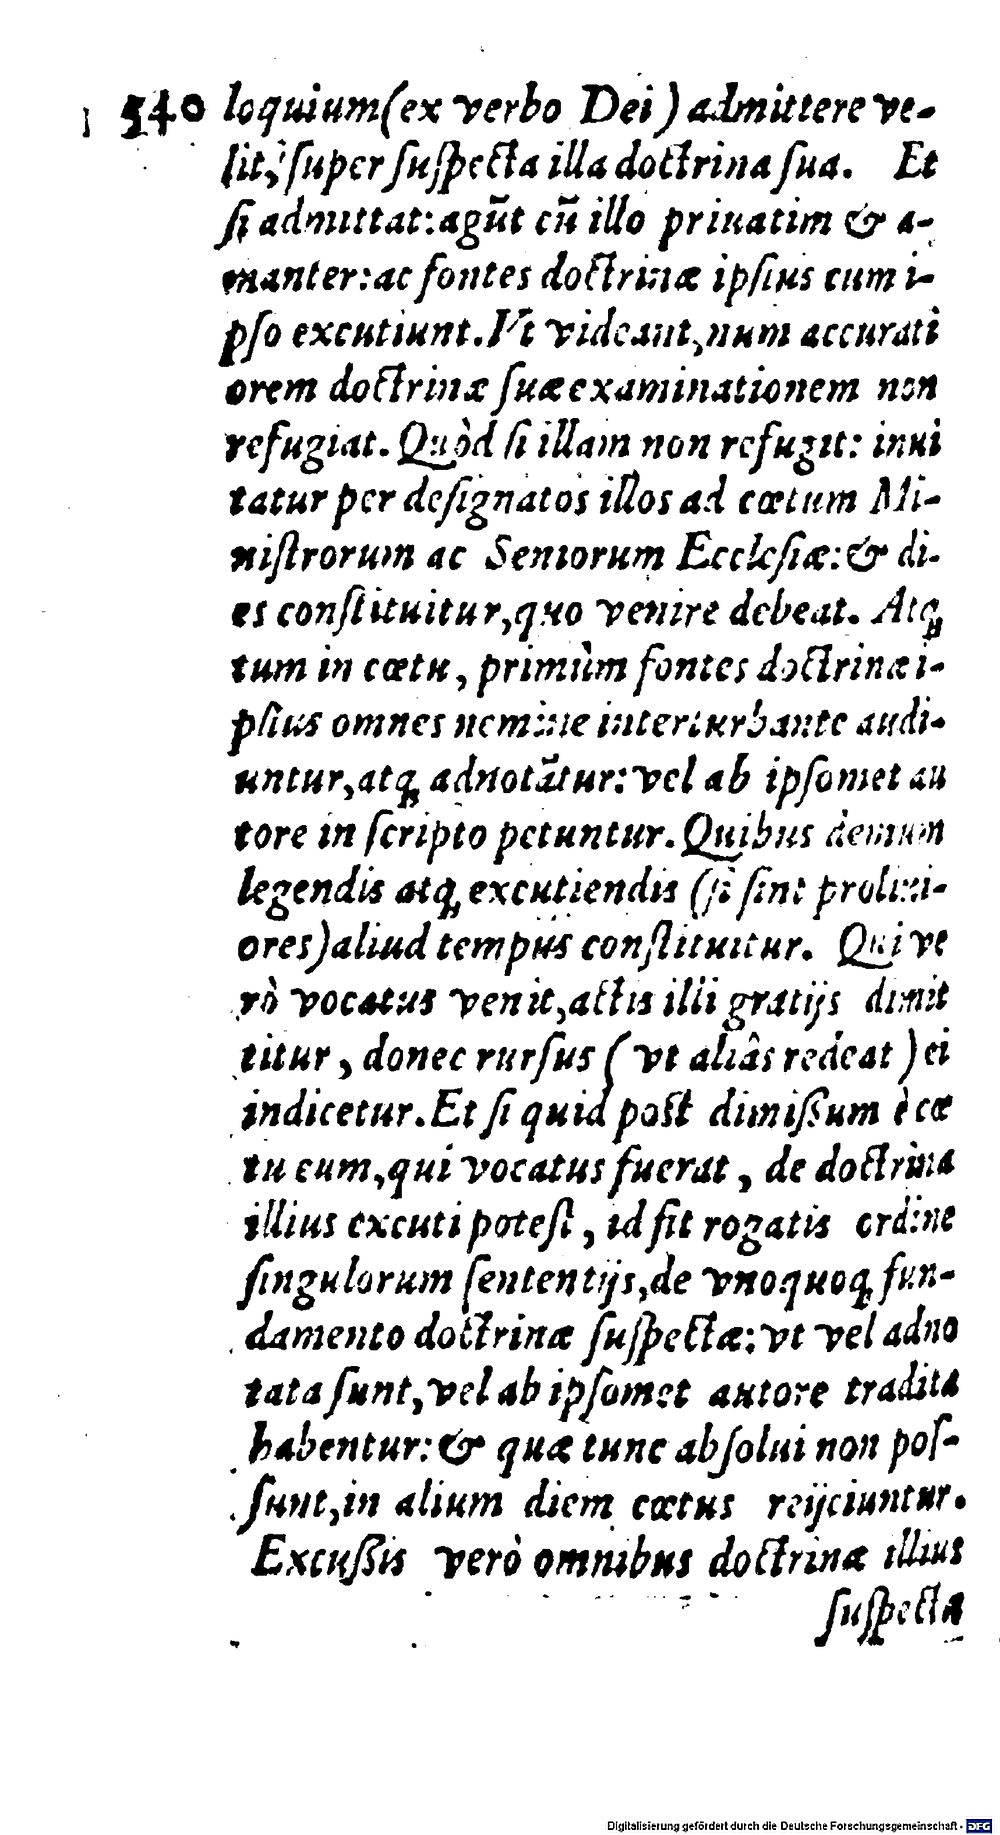 540 loquium (ex verbo Dei) admittere ve-
lit, super suspecta illa doctrina sua. Et
si admittat: agūt cū illo priuatim & a-
manter: ac fontes doctrinæ ipsius cum i-
pso excutiunt. Vt videant, num accurati
orem doctrinæ suæ examinationem non
refugiat. Quòd si illam non refugit: inui
tatur per designatos illos ad cœtum Mi-
nistrorum ac Seniorum Ecclesiæ: & di-
es constituitur, quo venire debeat. Atq;
tum in cœtu, primùm fontes doctrinæ i-
psius omnes nemine interturbante audi-
untur, atq; adnotātur: vel ab ipsomet au
tore in scripto petuntur. Quibus demum
legendis atq; excutiendis (si sint prolixi-
ores) aliud tempus constituitur. Qui ve
rò vocatus venit, actis illi gratijs dimit
titur, donec rursus (vt aliâs redeat) ei
indicetur. Et si quid post dimissum è cœ
tu eum, qui vocatus fuerat, de doctrina
illius excuti potest, id fit rogatis ordine
singulorum sententijs, de vnoquoq; fun-
damento doctrinæ suspectæ: vt vel adno
tata sunt, vel ab ipsomet autore tradita
habentur: & quæ tunc absolui non pos-
sunt, in alium diem cœtus reijciuntur.
Excussis verò omnibus doctrinæ illius
suspecta
Digitalisierung gefördert durch die Deutsche Forschungsgemeinschaft - DFG